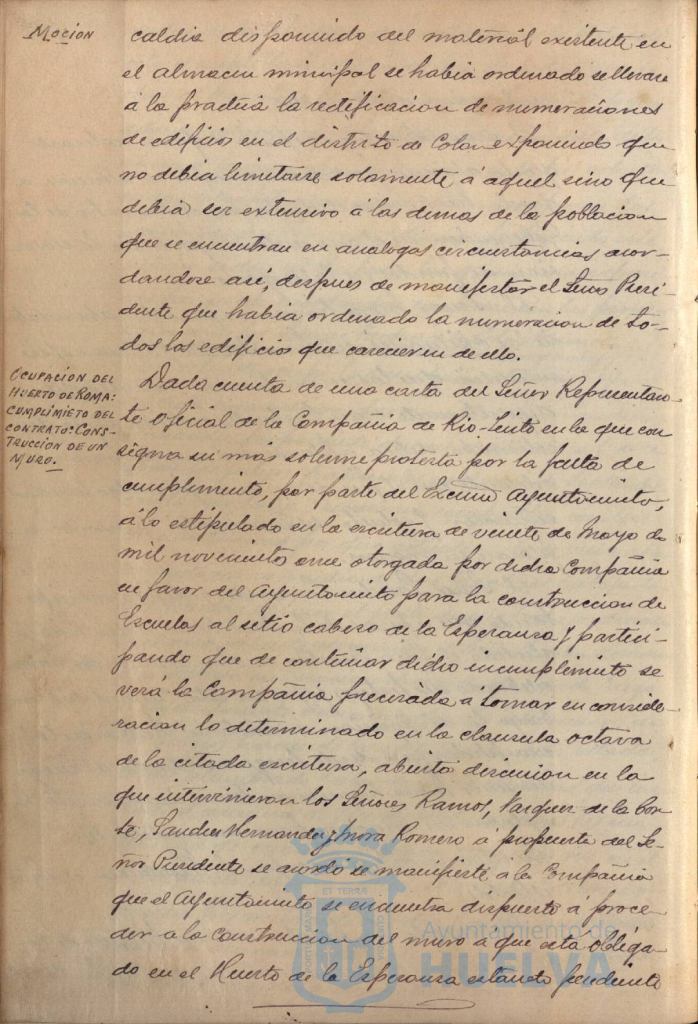 Moción
caldia disponiendo del material existente en
el almacen municipal se habia ordenado se llevara
á la practica la rectificacion de numeraciones
de edificios en el distrito de Colon exponiendo que
no debia limitarse solamente á aquel sino que
debia ser extensivo á las demas de la poblacion
que se encuentran en analogas circunstancias acor-
dandose asi, despues de manifestar el Señor Presi-
dente que habia ordenado la numeracion de to-
dos los edificios que carecieren de ello.
OCUPACIÓN DEL
HUERTO DE ROMA:
CUMPLIMIETO DEL
CONTRATO: CONS-
TRUCCIÓN DE UN
MURO.
Dada cuenta de una carta del Señor Representan-
te oficial de la Compañia de Rio-Tinto en la que con
signa su más solemne protesta por la falta de
cumplimiento, por parte del Excmo Ayuntamiento,
á lo estipulado en la escritura de veinte de Mayo de
mil novecientos once otorgada por dicha Compañia
en favor del Ayuntamiento para la construccion de
Escuelas al sitio cabezo de la Esperanza y partici-
pando que de continuar dicho incumplimiento se
verá la Compañia precisada á tomar en conside-
racion lo determinado en la clausula octava
de la citada escritura, abierta discusion en la
que intervinieron los Señores Ramos, Vazquez de la Cor-
te, Sanchez Hernandez y Mora Romero á propuesta del Se-
ñor Presidente se acordó se manifieste á la Compañia
que el Ayuntamiento se encuentra dispuesto á proce-
der a la construccion del muro a que esta obliga-
do en el Huerto de la Esperanza estando pendiente
ET TERRA
Ayuntamiento de
HUELVA